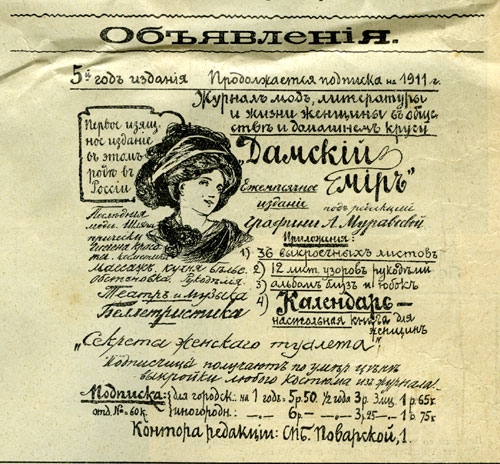 Объявленія.
5й годъ изданія Продолжается подписка на 1911 г.
Журналъ модъ, литературы
и жизни женщины въ обще-
ствѣ и домашнемъ кругу
Первое изящ-
ное изданіе
въ этомъ
родѣ въ
Россіи
„Дамскій
міръ"
Ежемѣсячное
изданіе
подъ редакціей
графини А. Муравьевой
Послѣднія
моды. Шляпы
прически
гигіена красо-
та. косметика
массажъ, кухня бѣлье.
обстановка. Рукодѣлія.
Театръ и Музыка
Беллетристика
Приложенія:
1) 36 выкроечныхъ листовъ
2) 12 лист. узоровъ рукодѣлій
3) альбомъ блузъ и юбокъ
4) Календарь—
настольная книга для
женщинъ
„Секреты женскаго туалета"
Подписчицы получаютъ по уменьш цѣнѣ
выкройки любого костюма изъ журнала!
Подписка: для городск: на 1 годъ 5р.50. ½ года 3р. 3 мц. 1 р. 65к
отд. № 60к. иногородн: —.— 6р— —.— 3р.25 —.— 1 р. 75к
Контора редакціи: СПБ. Поварской, 1.